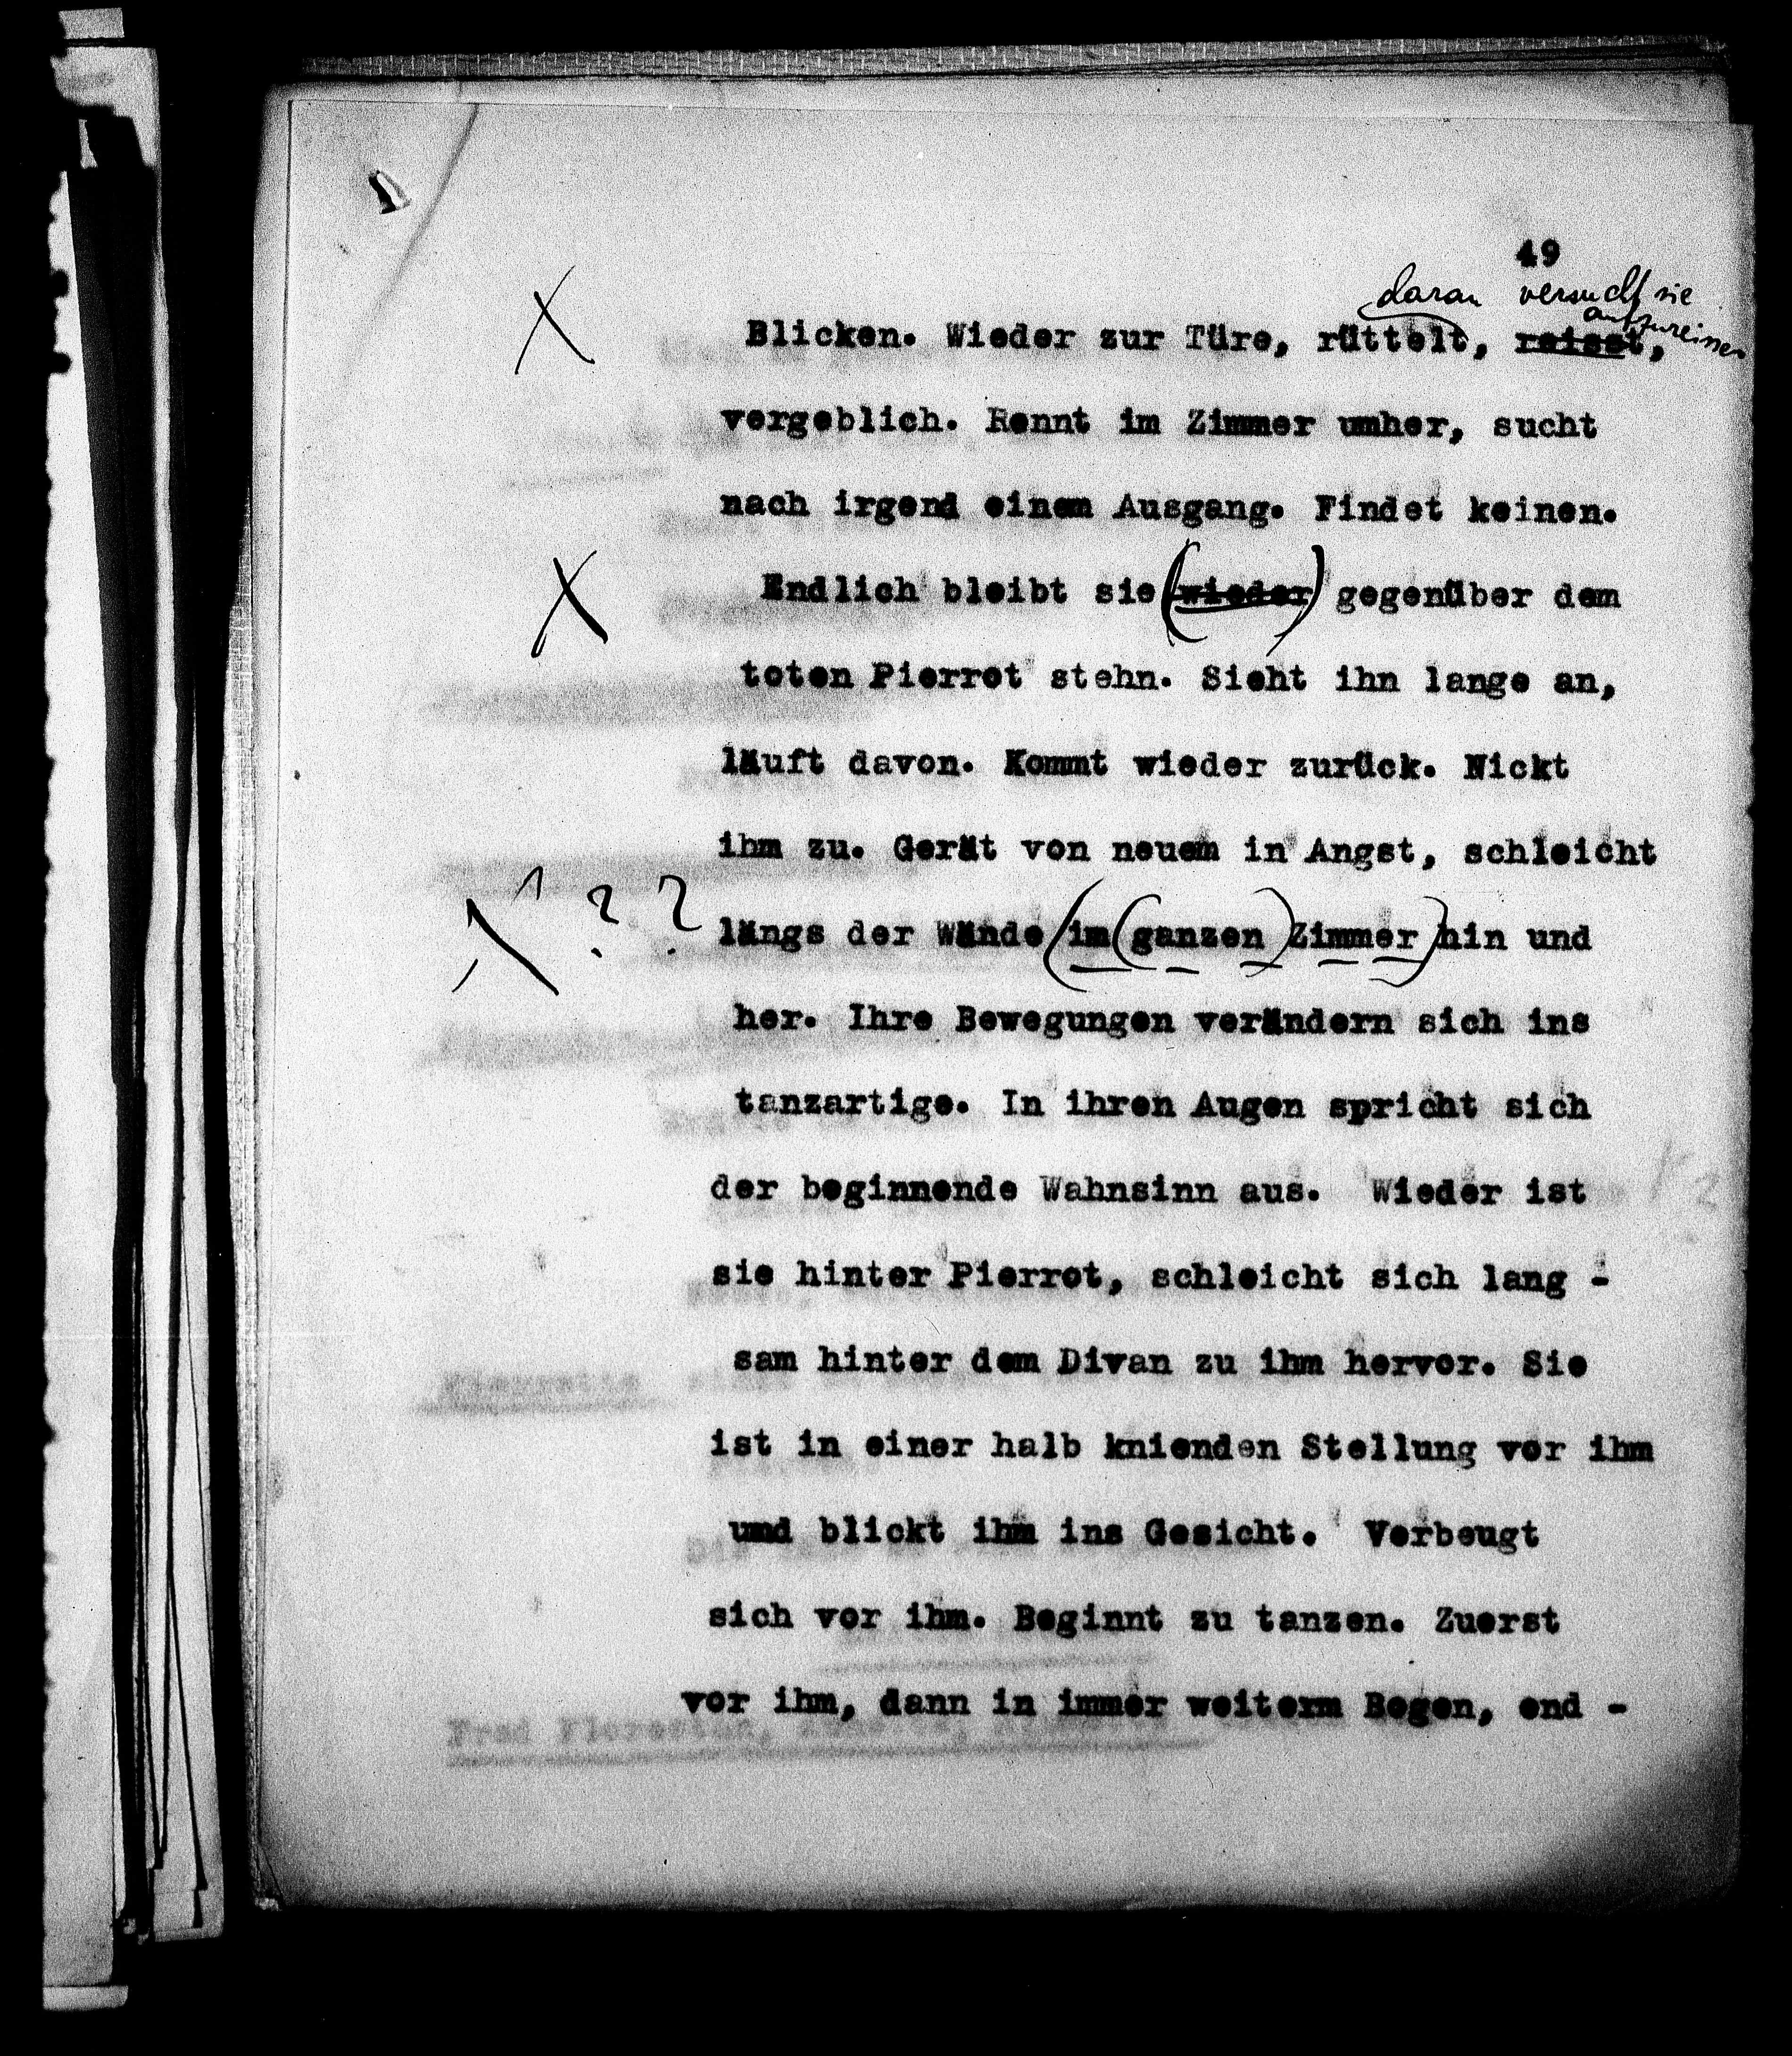 49
daran versucht sie
aufzureissen
Blicken. Wieder zur Türe, rüttelt, reisst,
vergeblich. Rennt im Zimmer umher, sucht
nach irgend einem Ausgang. Findet keinen.
X Endlich bleibt sie (wieder) gegenüber dem
toten Pierrot stehn. Sieht ihn lange an,
läuft davon. Kommt wieder zurück. Nickt
ihm zu. Gerät von neuem in Angst, schleicht
? ? längs der Wände (im (ganzen) Zimmer) hin und
her. Ihre Bewegungen verändern sich ins
tanzartige. In ihren Augen spricht sich
der beginnende Wahnsinn aus. Wieder ist
sie hinter Pierrot, schleicht sich lang -
sam hinter dem Divan zu ihm hervor. Sie
ist in einer halb knienden Stellung vor ihm
und blickt ihm ins Gesicht. Verbeugt
sich vor ihm. Beginnt zu tanzen. Zuerst
vor ihm, dann in immer weiterm Bogen, end -